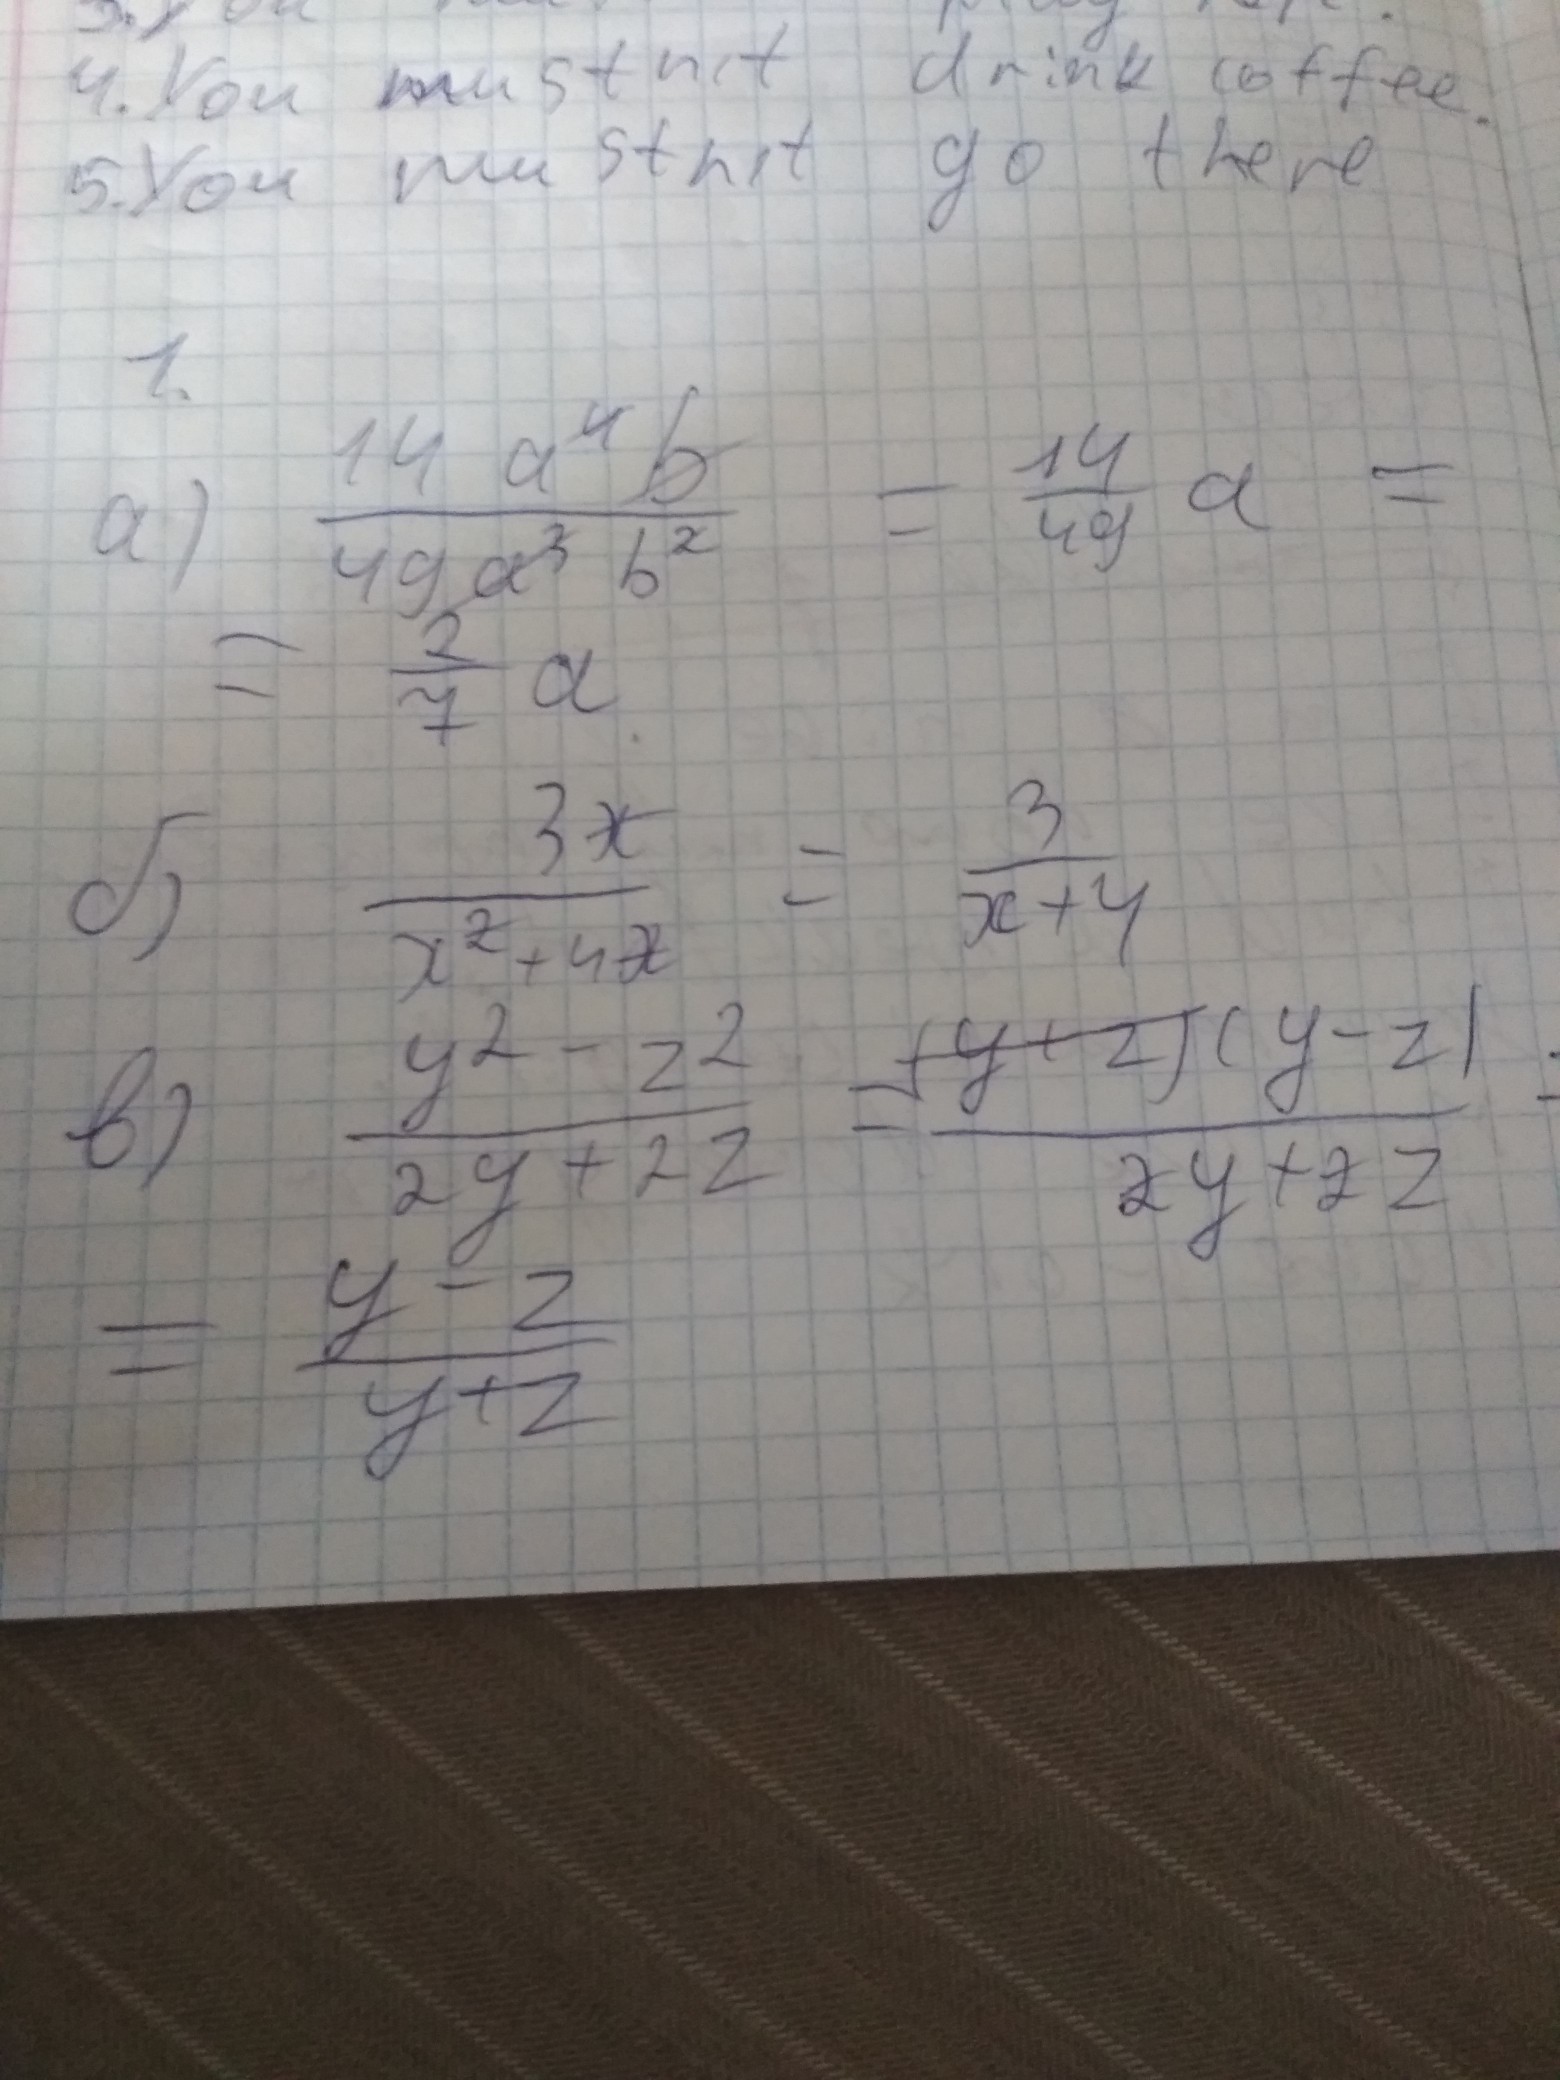 4. You mustn't drink coffee.
5. You mustn't go there
1.
а) 14 a⁴ b / 49 a³ b² = 14/49 a =
= 2/7 a
б) 3x / x²+4x = 3 / x+4
в) y² - z² / 2y + 2z = (y+z)(y-z) / 2y+2z =
= y - z / y+z